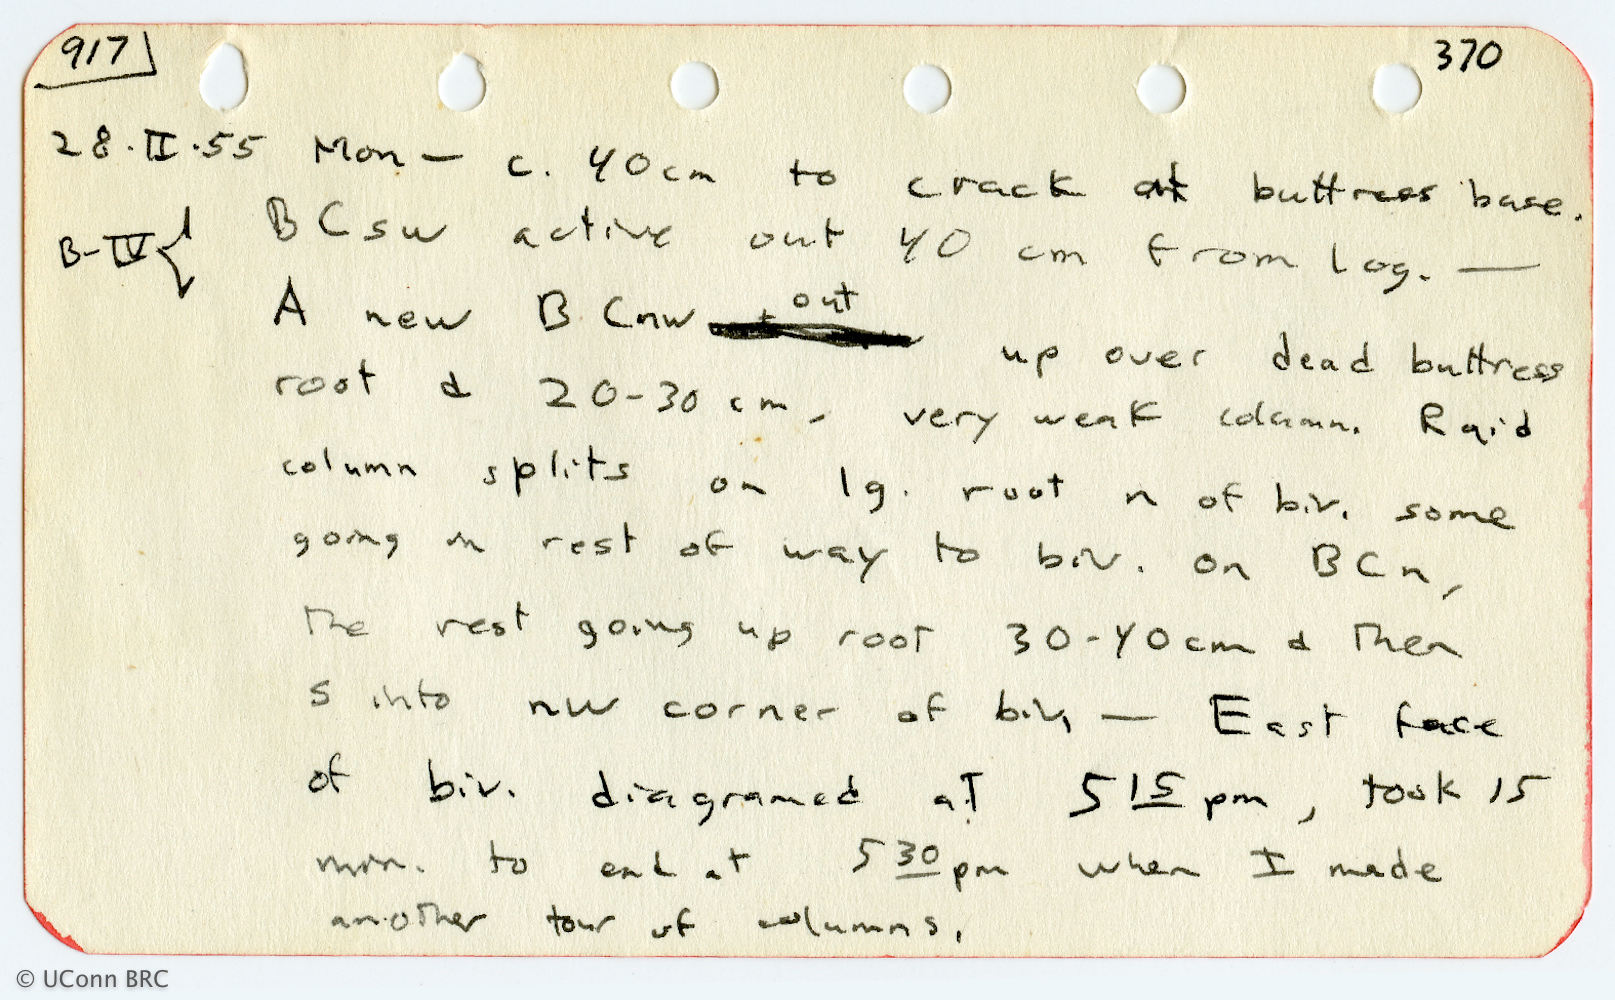 917
370
28.II.55 Mon — c. 40cm to crack at buttress base.
B-IV { BCsw active out 40 cm from log. —
A new BCnw out up over dead buttress
root & 20-30 cm, very weak column. Raid
column splits on lg. root n of biv. some
going in rest of way to biv. on BCn,
the rest going up root 30-40cm & then
s into nw corner of biv, — East face
of biv. diagramed at 5 15 pm, took 15
min. to end at 5 30 pm when I made
another tour of columns.
© UConn BRC